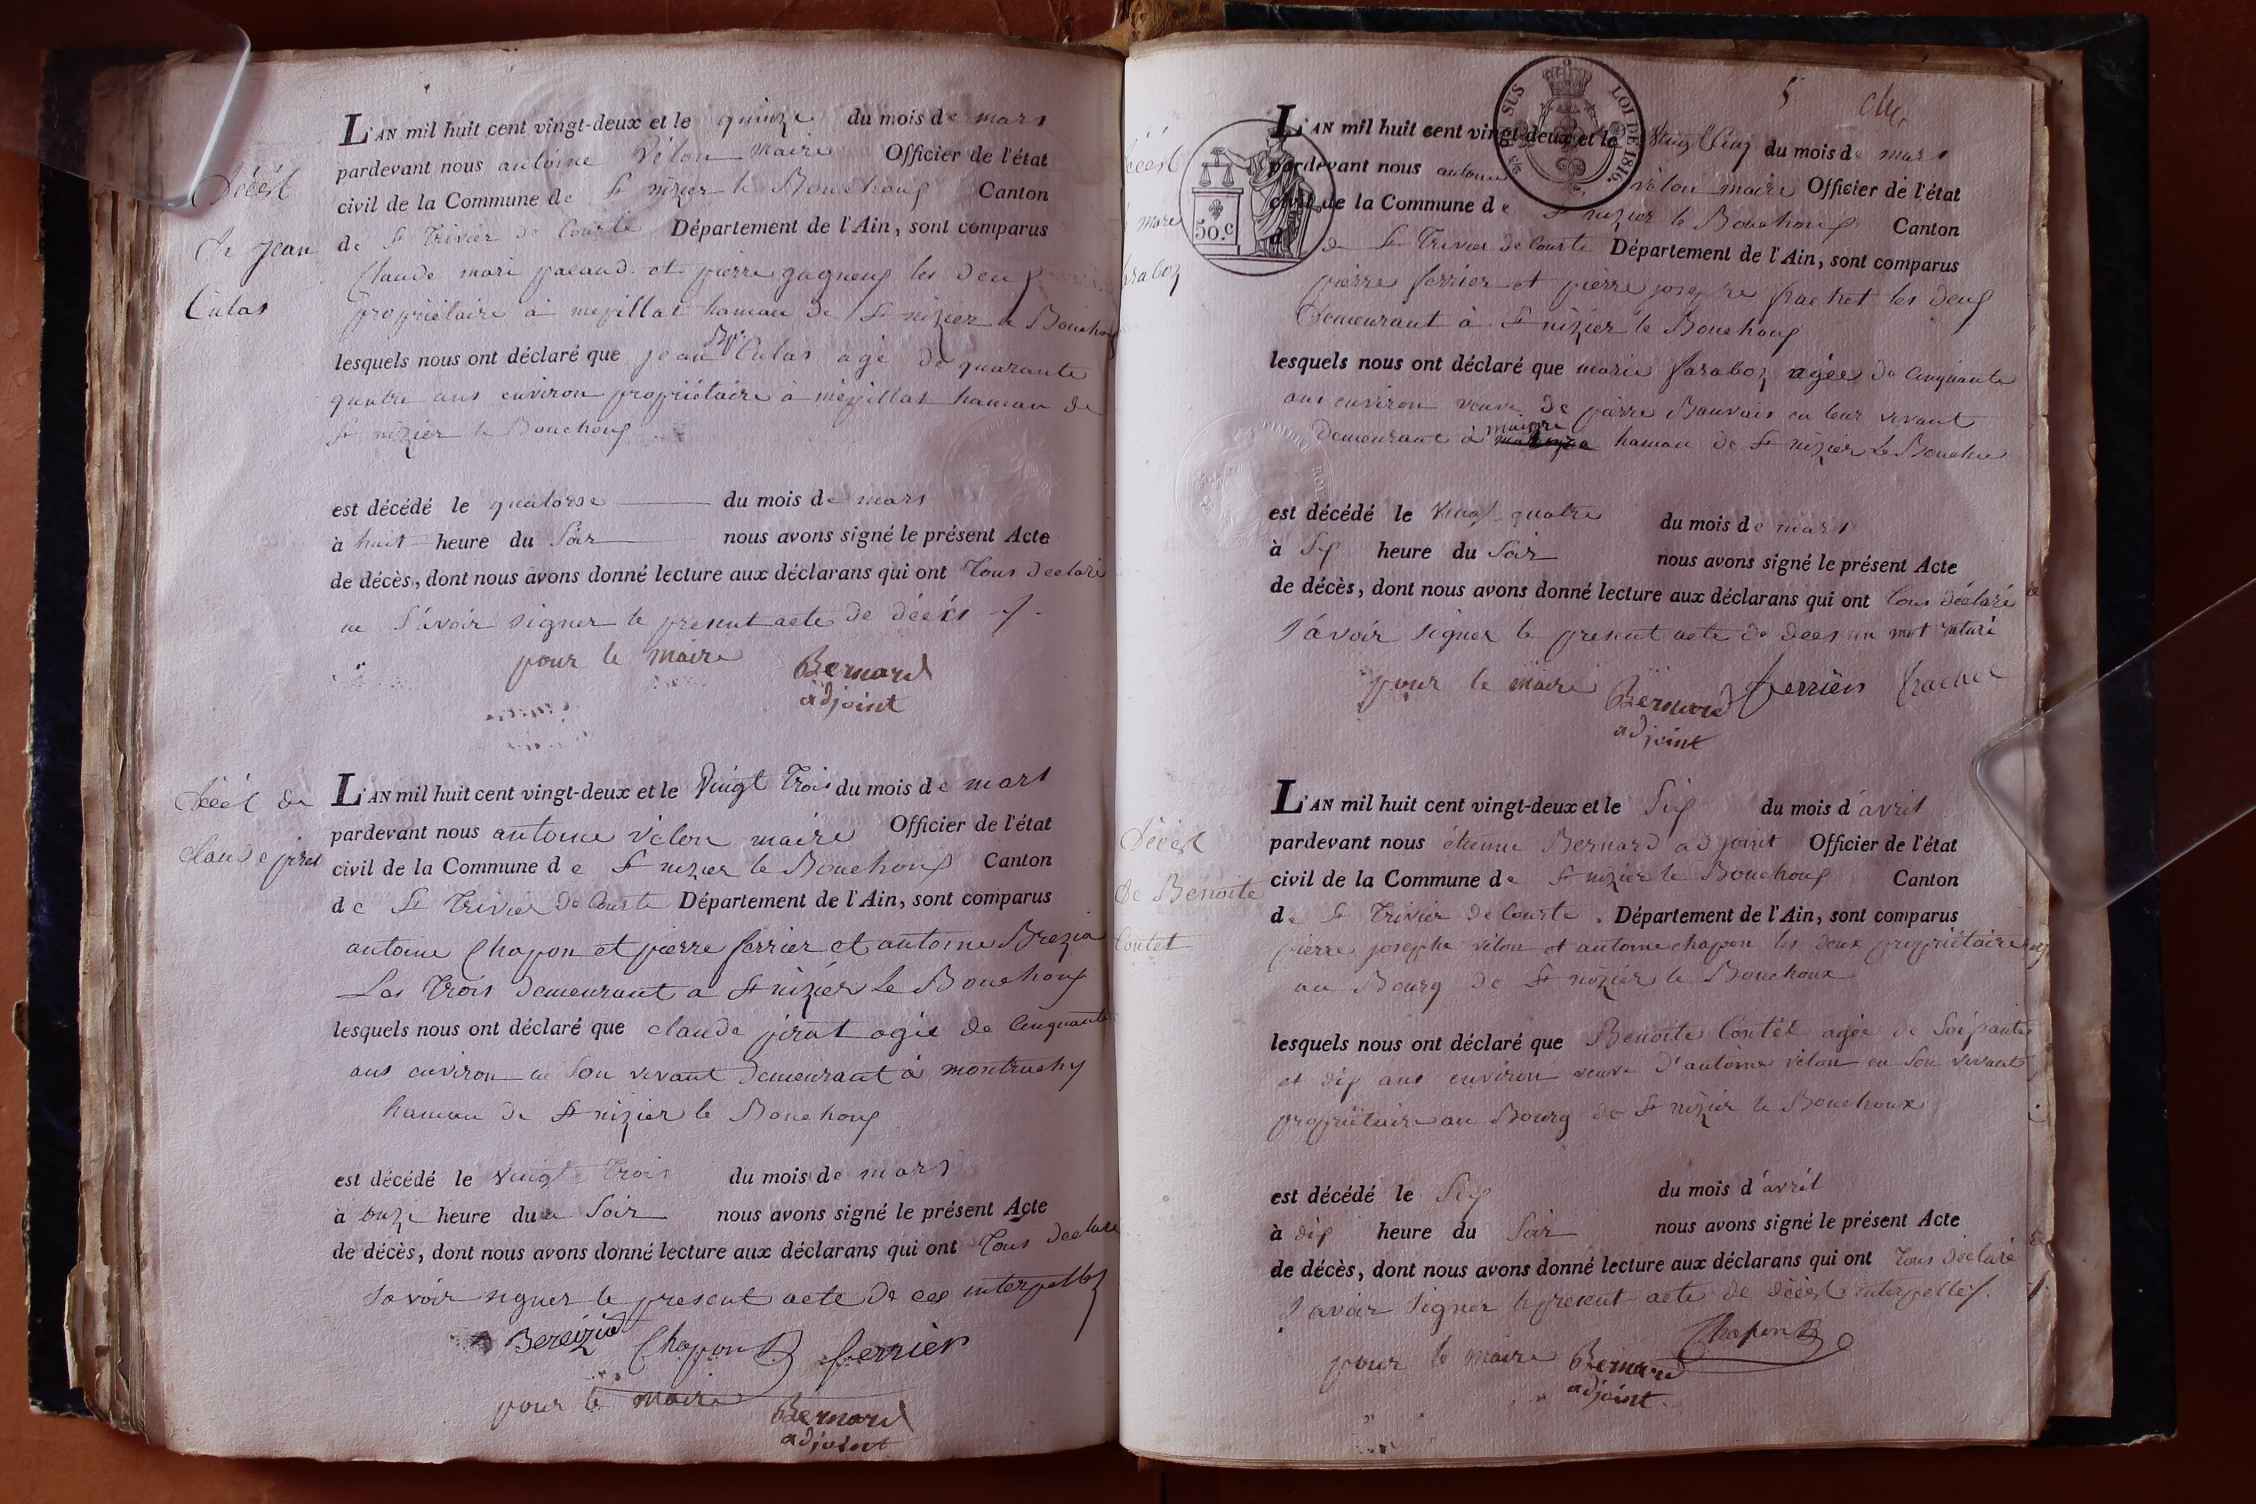 Décès
de jean
Culas
L'AN mil huit cent vingt-deux et le quinze du mois de mars
pardevant nous antoine vélon maire Officier de l'état
civil de la Commune de St nizier le Bouchoux Canton
de St Trivier de Courte Département de l'Ain, sont comparus
Claude mari pacaud et pierre gagneux les deux
propriétaire à mépillat hamau de St nizier le Bouchoux
lesquels nous ont déclaré que jean Bte Culas agé de quarante
quatre ans environ propriétaire à mépillat hamau de
St nizier le Bouchoux
est décédé le quatorse du mois de mars
à huit heure du Soir nous avons signé le présent Acte
de décès, dont nous avons donné lecture aux déclarans qui ont Tous declaré
ne Savoir signer le present acte de décès
pour le maire Bernard
adjoint
Décés de
claude pirat
L'AN mil huit cent vingt-deux et le Vingt Trois du mois de mars
pardevant nous antoine vélon maire Officier de l'état
civil de la Commune de St nizier le Bouchoux Canton
de St Trivier de Courte Département de l'Ain, sont comparus
antoine Chapon et pierre ferrier et antoine Brezia
Les Trois demeurant a St nizier Le Bouchoux
lesquels nous ont déclaré que claude pirat agée de Cinquante
ans environ en Son vivant demeurant à montruchy
hamau de St nizier le Bouchoux
est décédé le vingt Trois du mois de mars
à onze heure du Soir nous avons signé le présent Acte
de décès, dont nous avons donné lecture aux déclarans qui ont Tous declaré
Savoir signer le present acte de interpellés
Bereizia Chapon ferrier
pour le maire Bernard
adjoint
5
SUS LOI DE 1816.
50.c
Décést
marie
faraboz
L'AN mil huit cent vingt-deux et le Vingt Cinq du mois de mars
pardevant nous antoine vélon maire Officier de l'état
civil de la Commune de St nizier le Bouchoux Canton
de St Trivier de Courte Département de l'Ain, sont comparus
pierre ferrier et pierre josephe frachet les deux
Demeurant à St nizier le Bouchoux
lesquels nous ont déclaré que marie faraboz agées de Cinquante
ans environ veuve de pierre Bauvais en leur vivant
demeurant à maigre hamau de St nizier Le Bouchoux
est décédé le Vingt quatre du mois de mars
à Six heure du Soir nous avons signé le présent Acte
de décès, dont nous avons donné lecture aux déclarans qui ont Tous déclaré
Savoir signer le present acte de dees un mot raturé
pour le maire Bernard ferrier frachet
adjoint
Décést
de Benoite
Contet
L'AN mil huit cent vingt-deux et le Six du mois d'avril
pardevant nous étienne Bernard adjoint Officier de l'état
civil de la Commune de St nizier le Bouchoux Canton
de St Trivier de Courte. Département de l'Ain, sont comparus
pierre josephe vélon et antoine chapon les deux propriétaire
au Bourg de St nizier le Bouchoux
lesquels nous ont déclaré que Benoite Contét agée de Soixante
et dix ans environ veuve d'antoine vélon en Son vivant
propriétaire au Bourg de St nizier le Bouchoux
est décédé le Six du mois d'avril
à dix heure du Soir nous avons signé le présent Acte
de décès, dont nous avons donné lecture aux déclarans qui ont Tous déclaré
Savoir Signer le present acte de décést interpellés.
pour le maire Bernard Chapon
adjoint